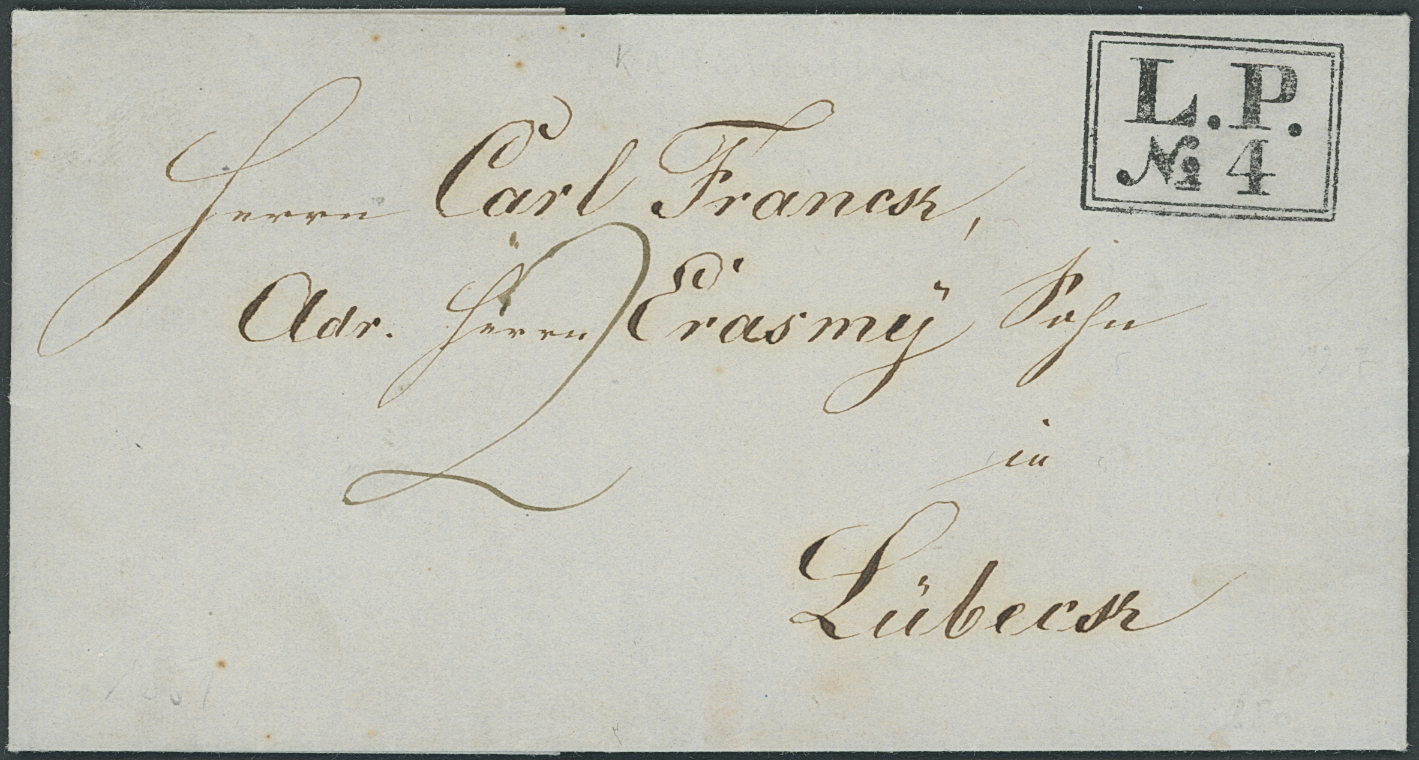 L. P.
№ 4
Herrn Carl Franck,
Adr. Herrn Erasmÿ Sohn
2
in
Lübeck